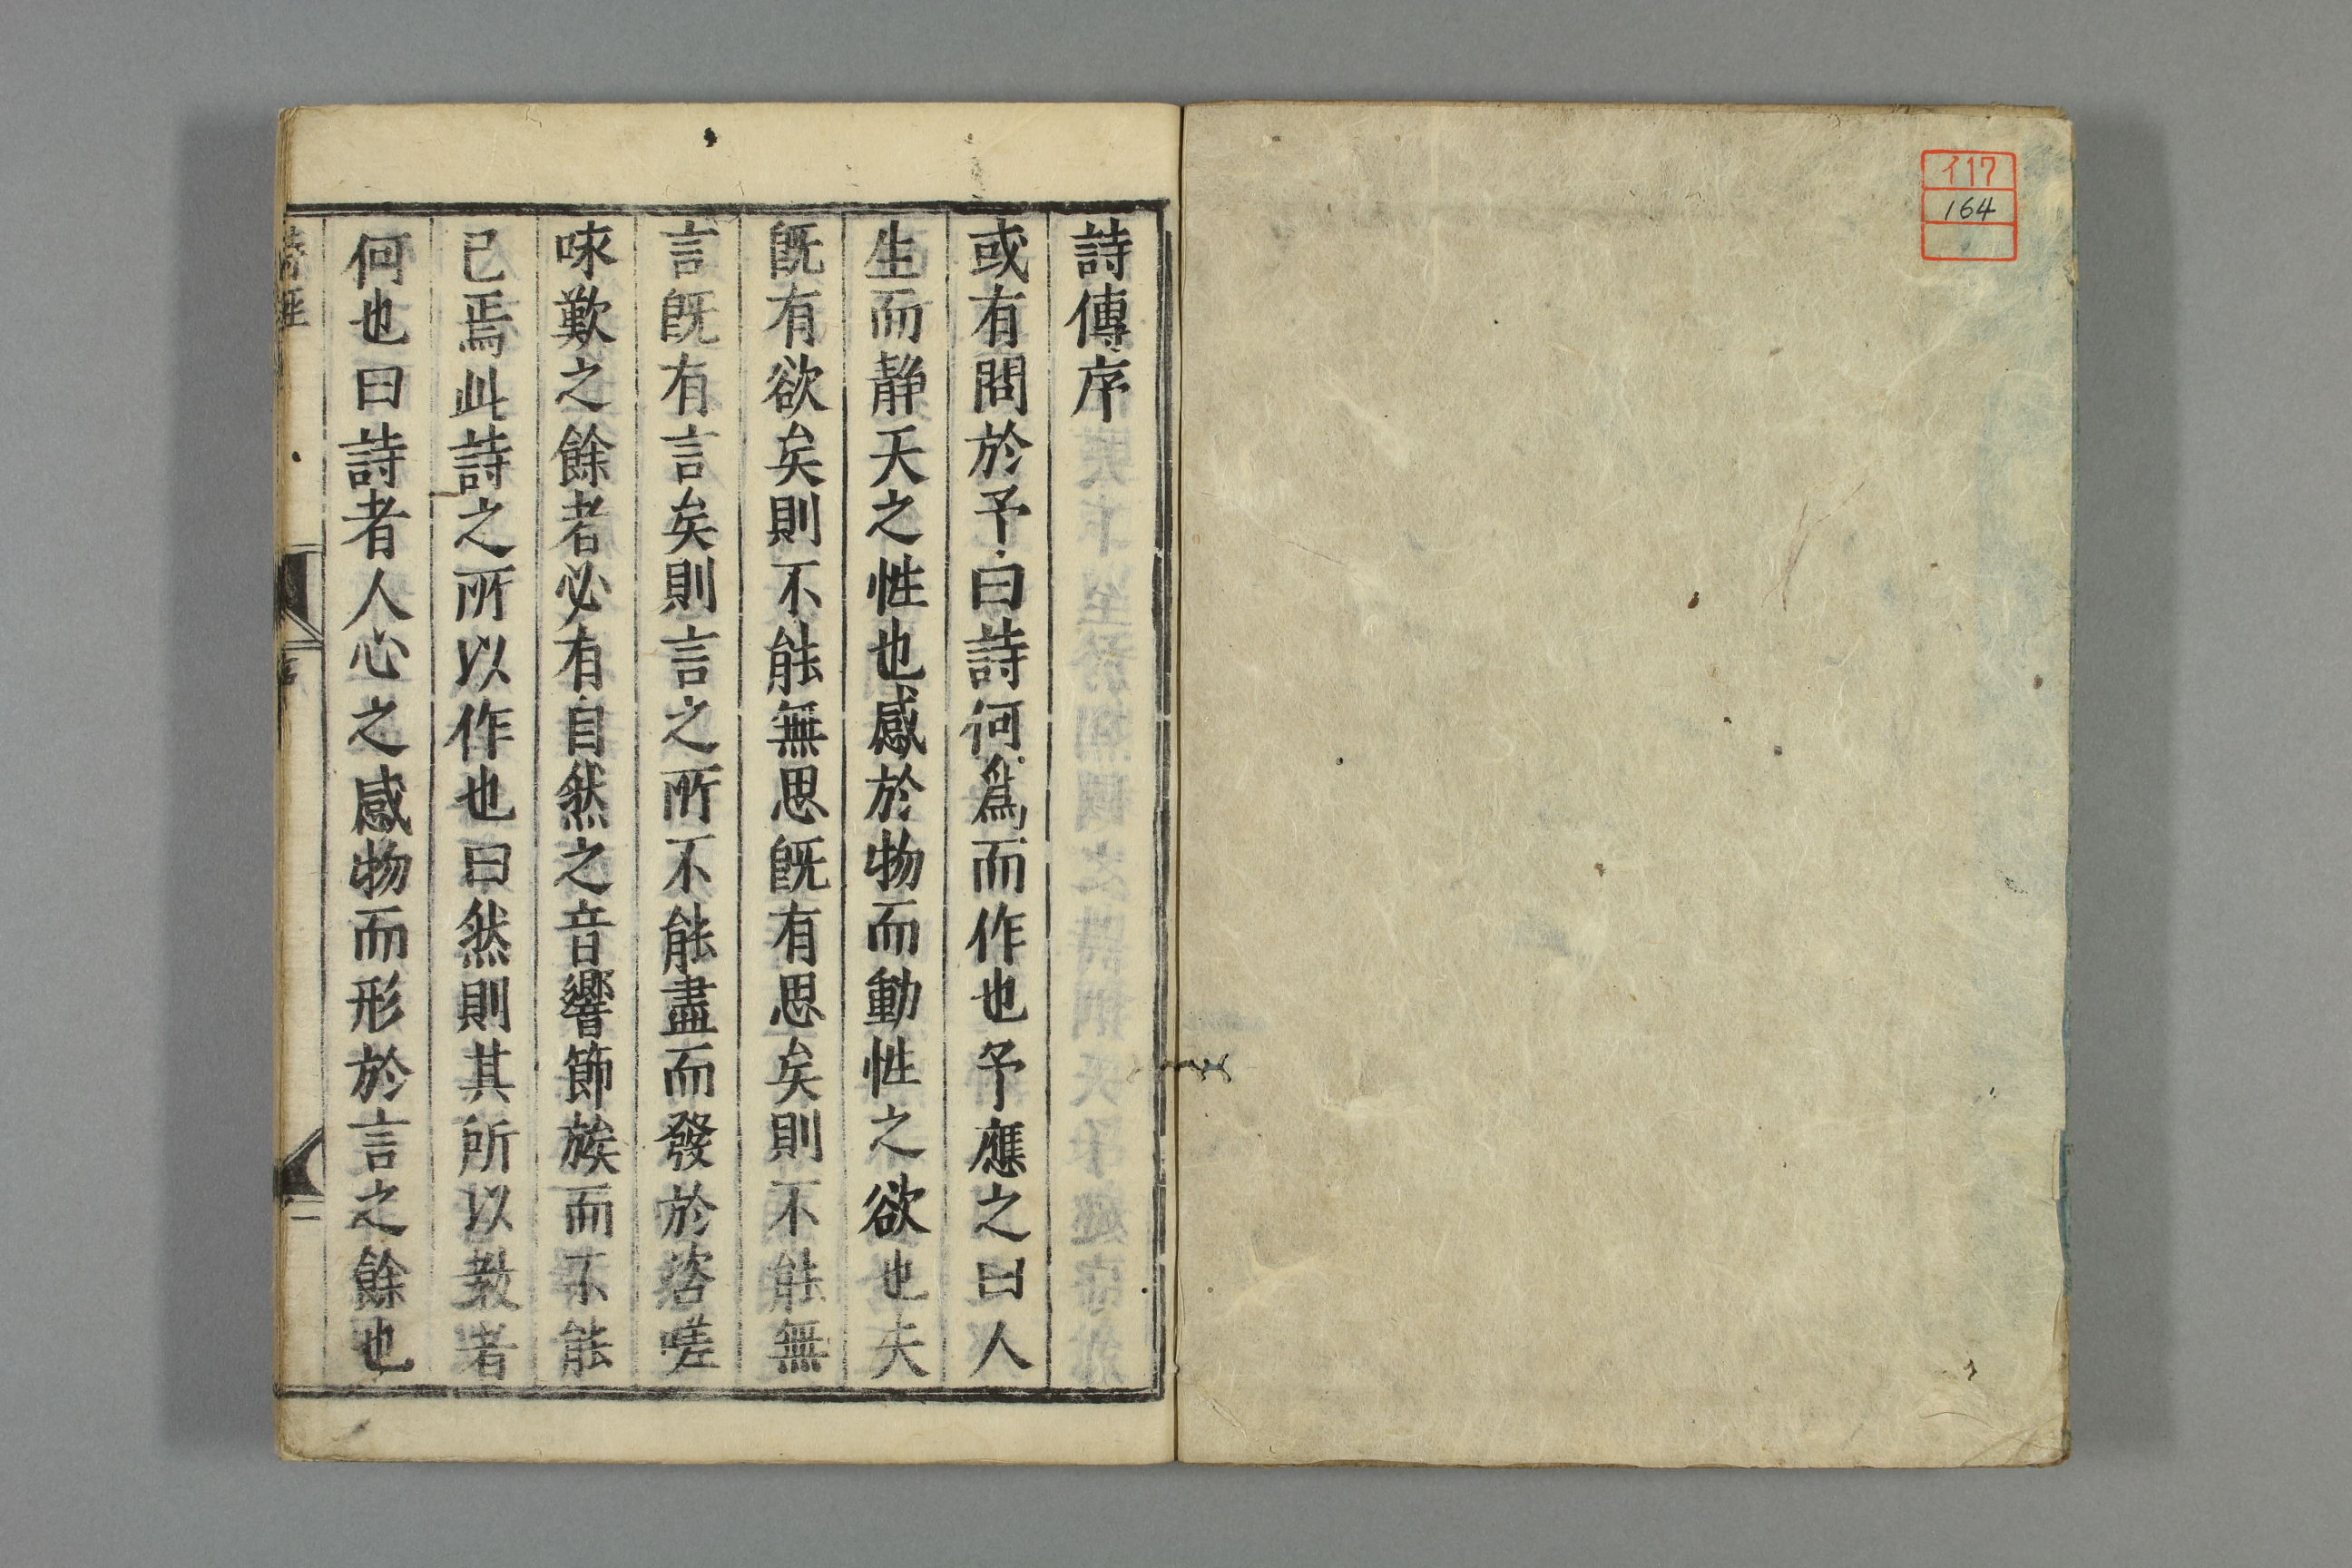 イ17
164
詩傳序
或有問於予曰詩何爲而作也予應之曰人
生而静天之性也感於物而動性之欲也夫
既有欲矣則不能無思既有思矣則不能無
言既有言矣則言之所不能盡而發於咨嗟
咏歎之餘者必有自然之音響節族而不能
已焉此詩之所以作也曰然則其所以教者
何也曰詩者人心之感物而形於言之餘也